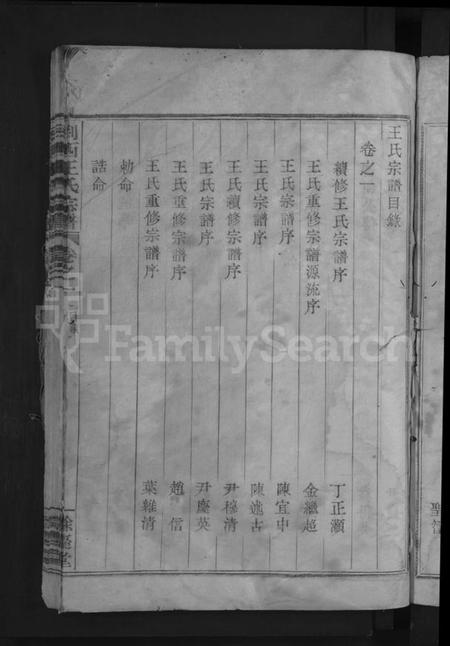 王氏宗譜目錄
卷之一
續修王氏宗譜序 丁正灝
王氏重修宗譜源流序 金繼超
王氏宗譜序 陳宜中
王氏宗譜序 陳述古
王氏續修宗譜序 尹穆清
王氏宗譜序 尹慶英
王氏重修宗譜序 趙信
王氏重修宗譜序 葉維清
勅命
誥命
西王氏宗譜
卷一
慶堂
FamilySearch